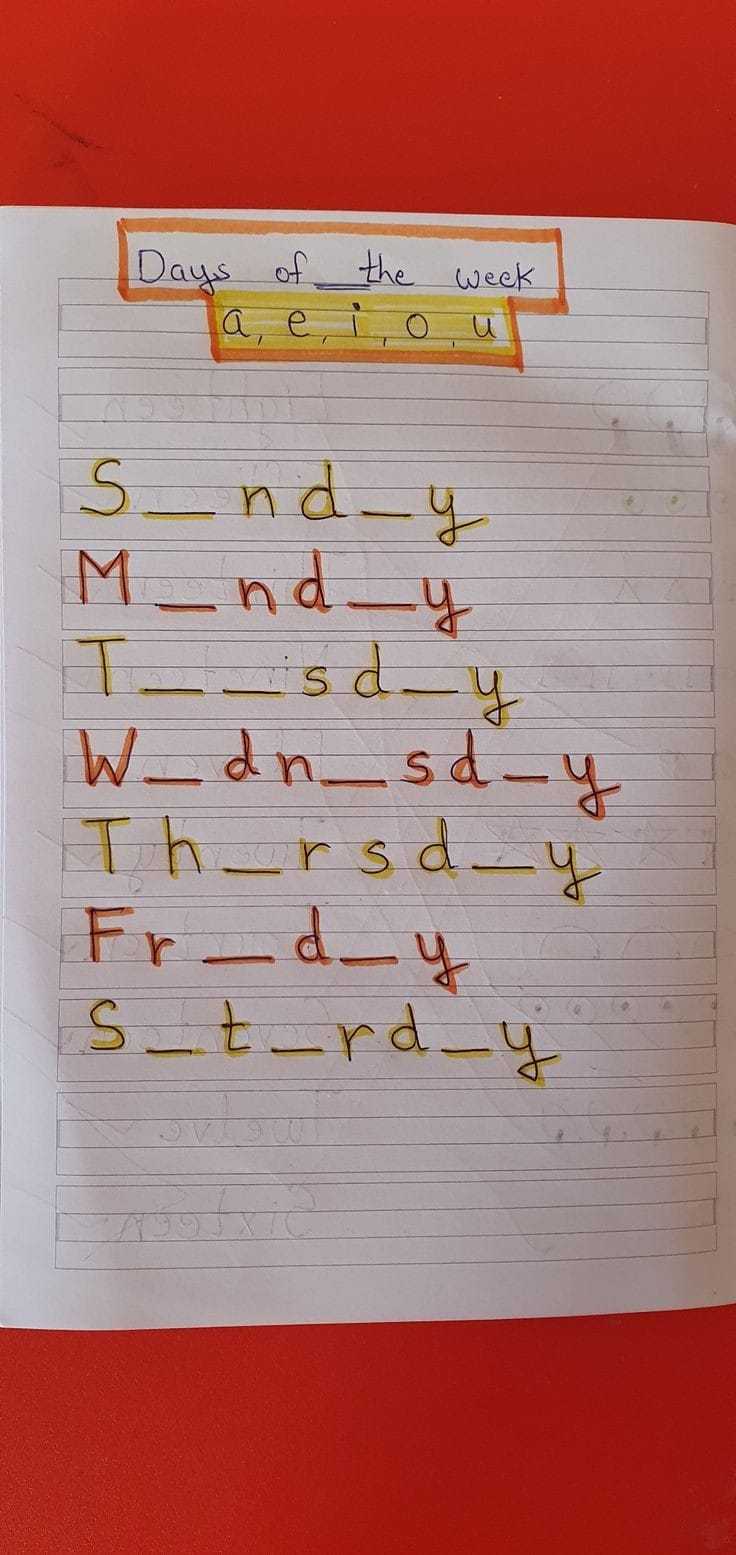 Days of the week
a, e, i, o, u
S_nd_y
M_nd_y
T__sd_y
W_dn_sd_y
Th_rsd_y
Fr_d_y
S_t_rd_y